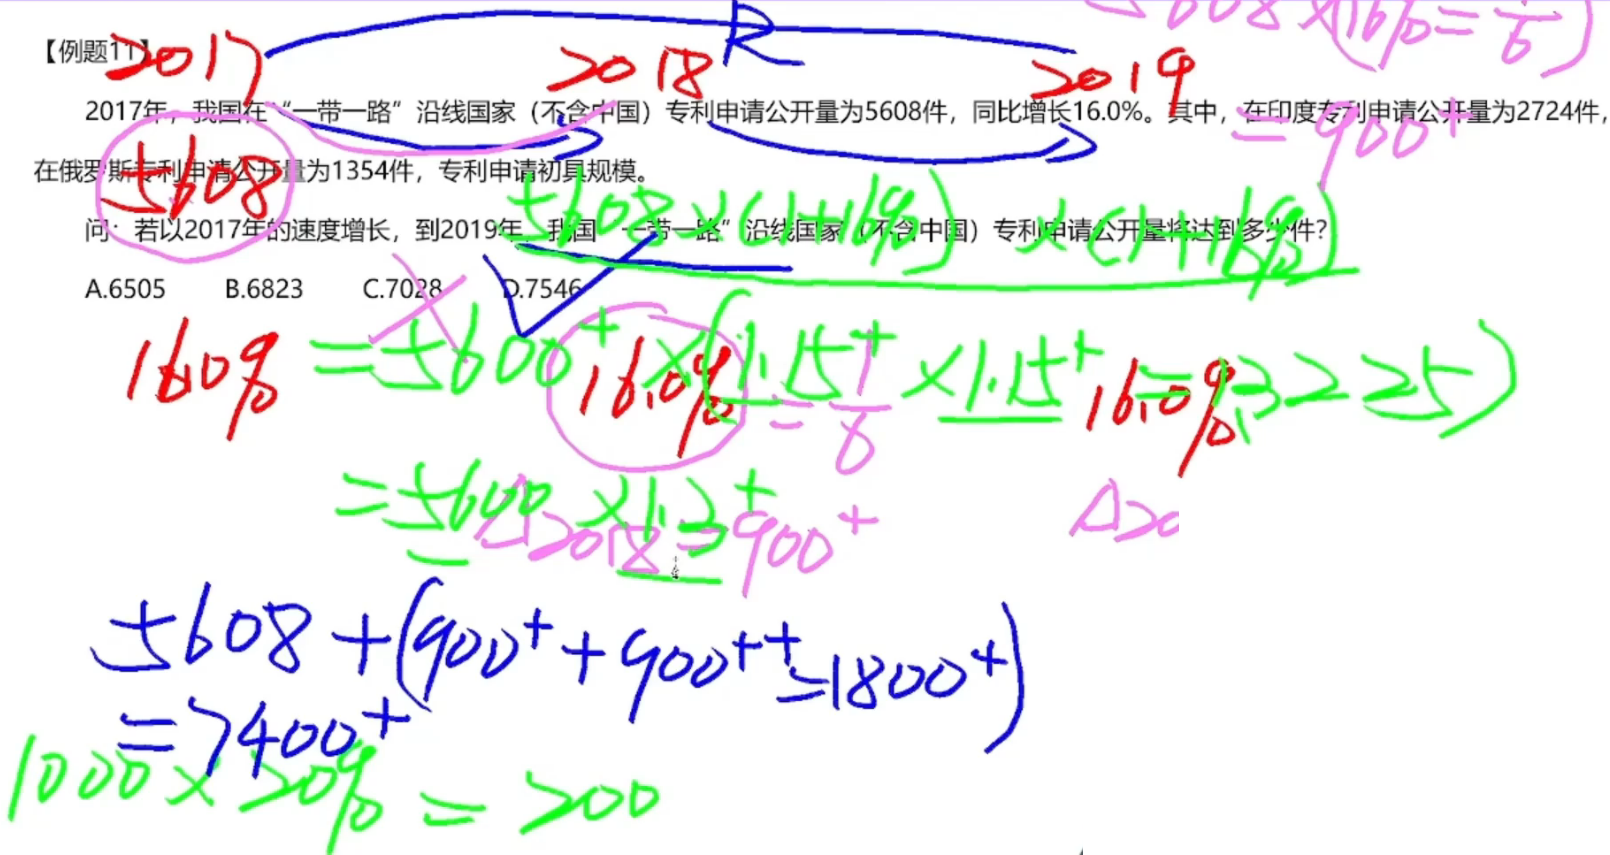 5608×16%=1/6)
R
【例题11】
2017 2018 2019
2017年，我国在“一带一路”沿线国家（不含中国）专利申请公开量为5608件，同比增长16.0%。其中，在印度专利申请公开量为2724件，
=900+
在俄罗斯专利申请公开量为1354件，专利申请初具规模。
5608
5608×(1+16%)×(1+16%)
问：若以2017年的速度增长，到2019年，我国“一带一路”沿线国家（不含中国）专利申请公开量将达到多少件？
A.6505 B.6823 C.7028 D.7546
16.0% 16.0% 16.0%
=5600+×(1.15+×1.15+=1.3225)
=1/6
=5600×1.3+
△2018=900+
△20
5608+(900++900++=1800+)
=7400+
1000×20%=200